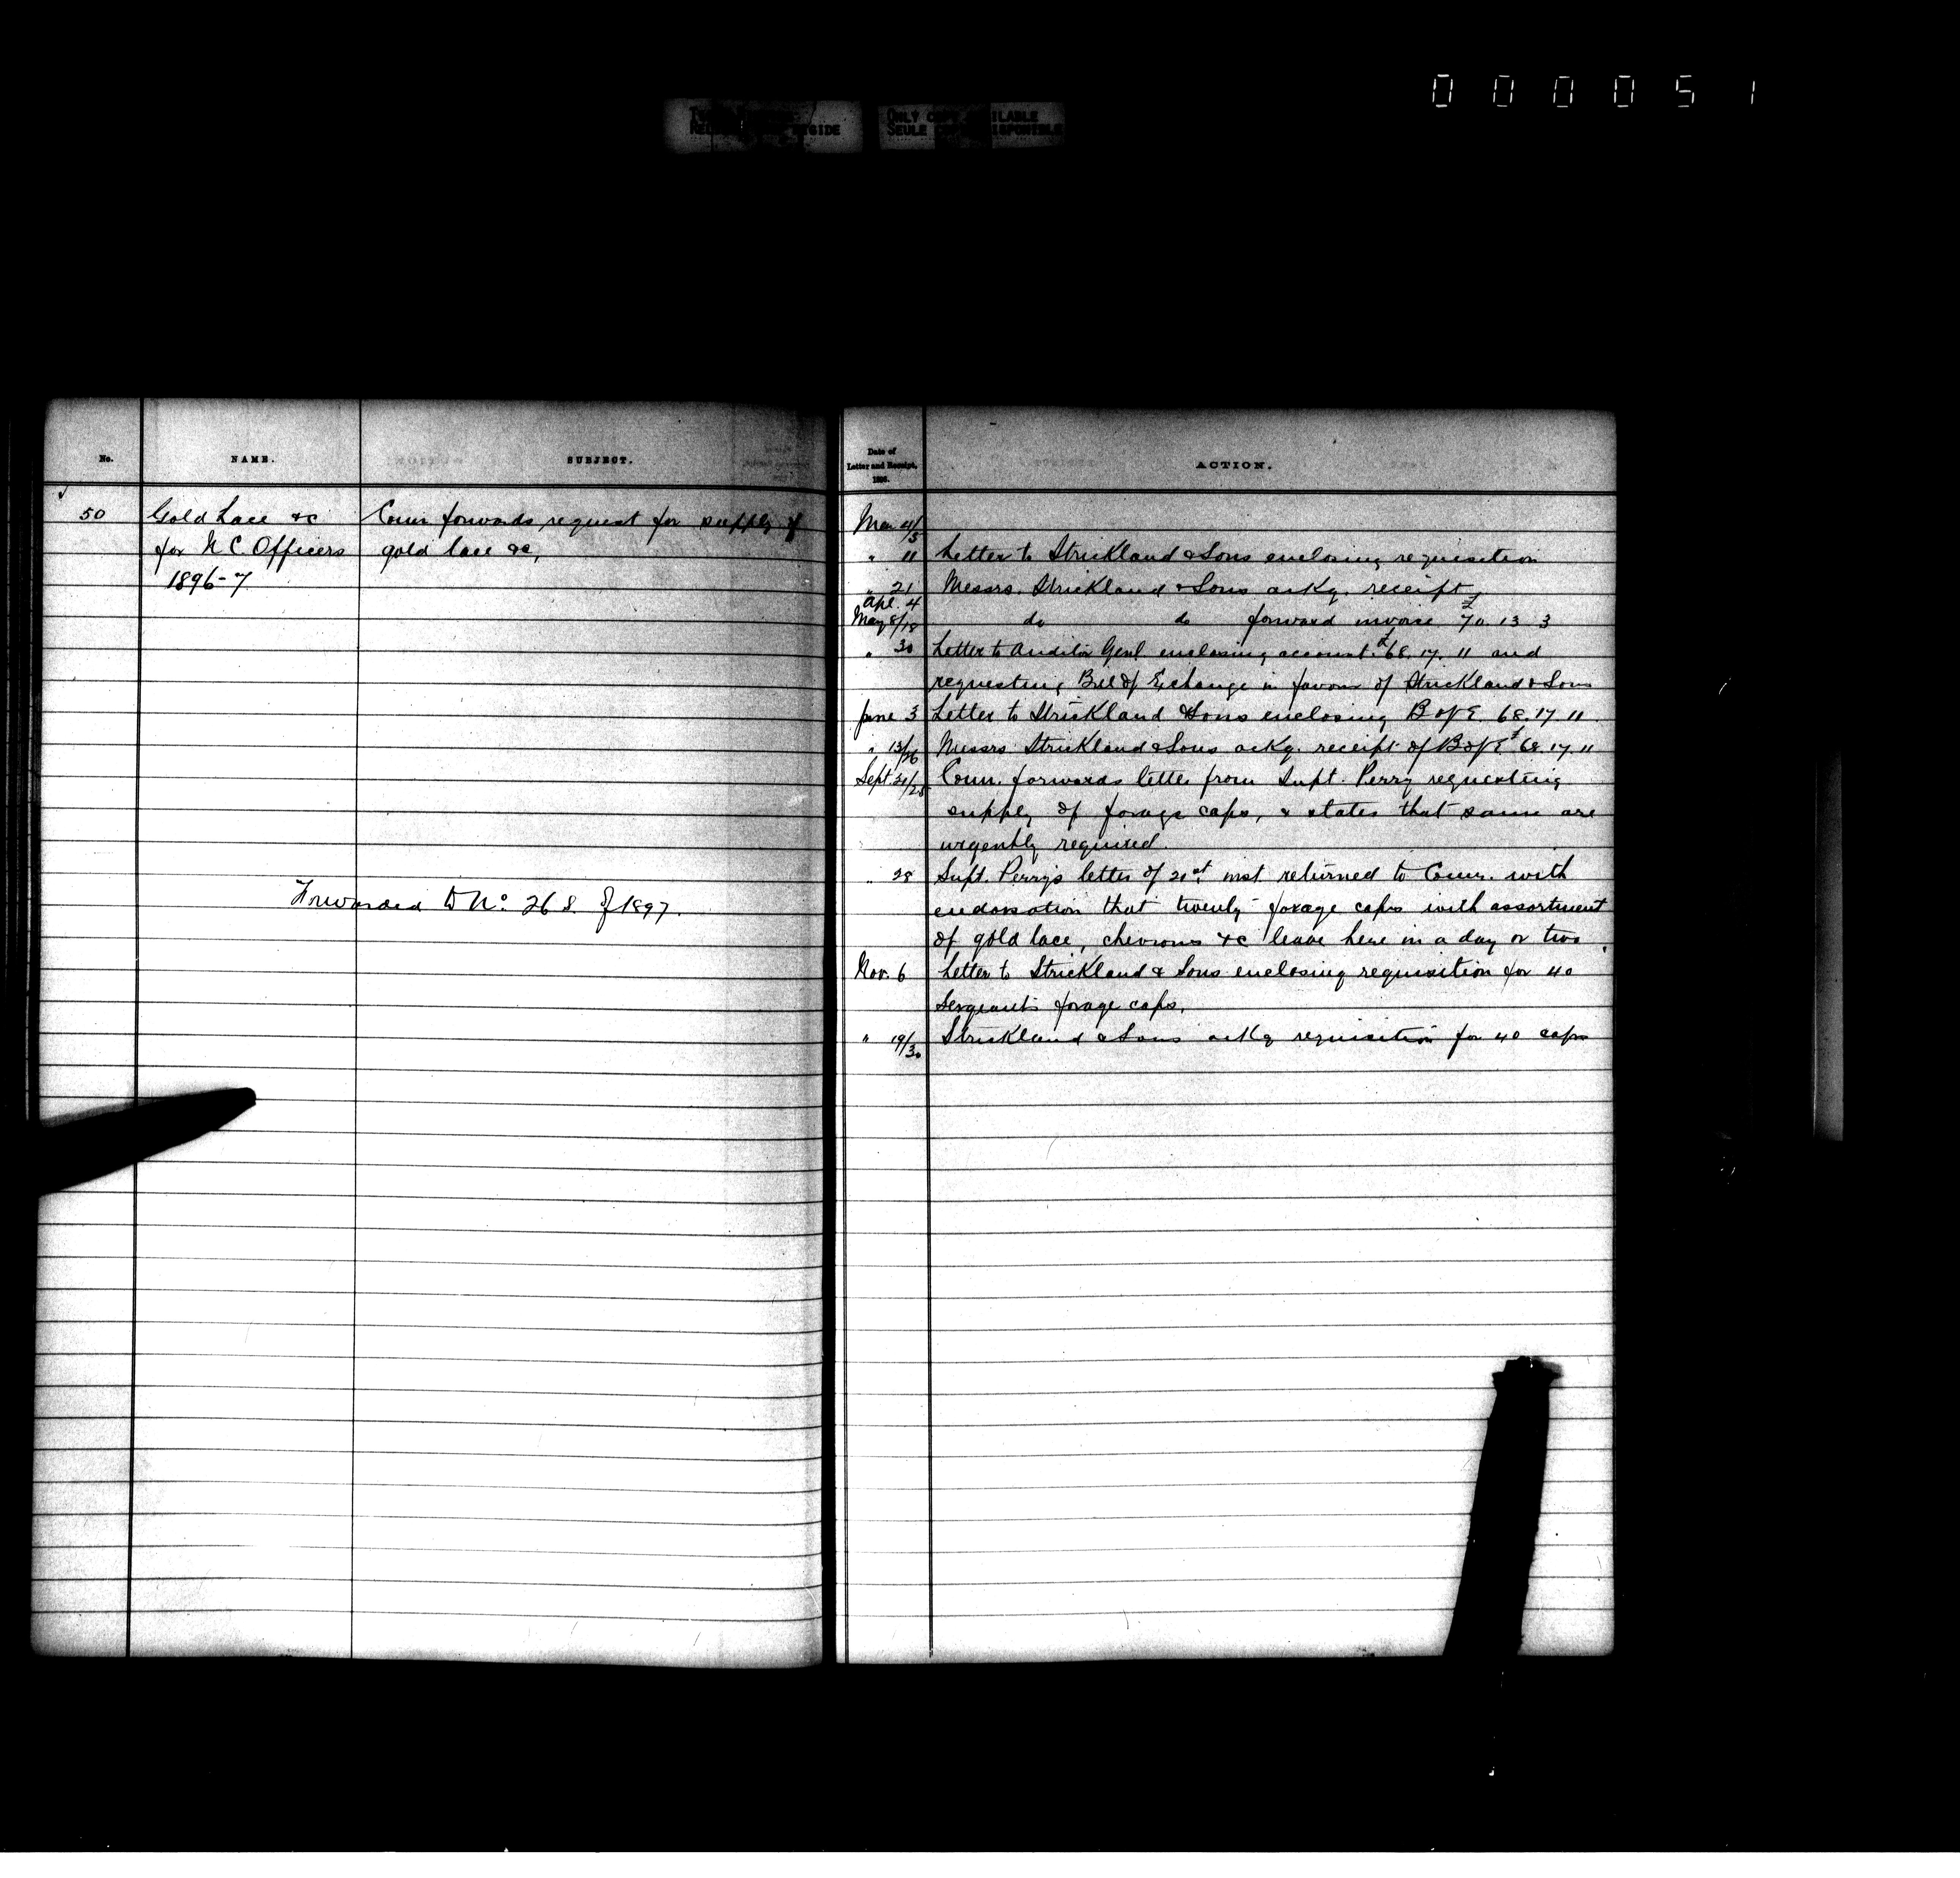 0 0 0 0 5 1
ONLY COPY AVAILABLE
SEULE COPIE DISPONIBLE
No.
NAME.
SUBJECT.
50
Gold Lace &c
for N C Officers
1896-7
Comr forwards request for supply of
gold lace &c,
Forwarded to No. 268 of 1897.
Date of
Letter and Receipt,
1896.
ACTION.
Mar 4/5
" 11 Letter to Strickland & Sons enclosing requisition
" 21 Messrs. Strickland & Sons ackg. receipt
Apl. 4
May 8/18 do do forward invoice £70. 13 3
" 30 Letter to Auditor Genl enclosing account £68. 17. 11 and
requesting Bill of Exchange in favour of Strickland & Sons
June 3 Letter to Strickland & Sons enclosing B of E. 68. 17 11
" 13/26 Messrs Strickland & Sons ackg. receipt of B of E £68. 17 11
Sept. 21/25 Comr. forwards letter from Supt. Perry requesting
supply of forage caps, & states that same are
urgently required.
" 28 Supt. Perrys letter of 21st. inst returned to Comr. with
endorsation that twenty forage caps with assortment
of gold lace, chevrons &c leave here in a day or two.
Nov. 6 Letter to Strickland & Sons enclosing requisition for 40
Sergeants forage caps.
" 19/30 Strickland & Sons ackg requisition for 40 caps